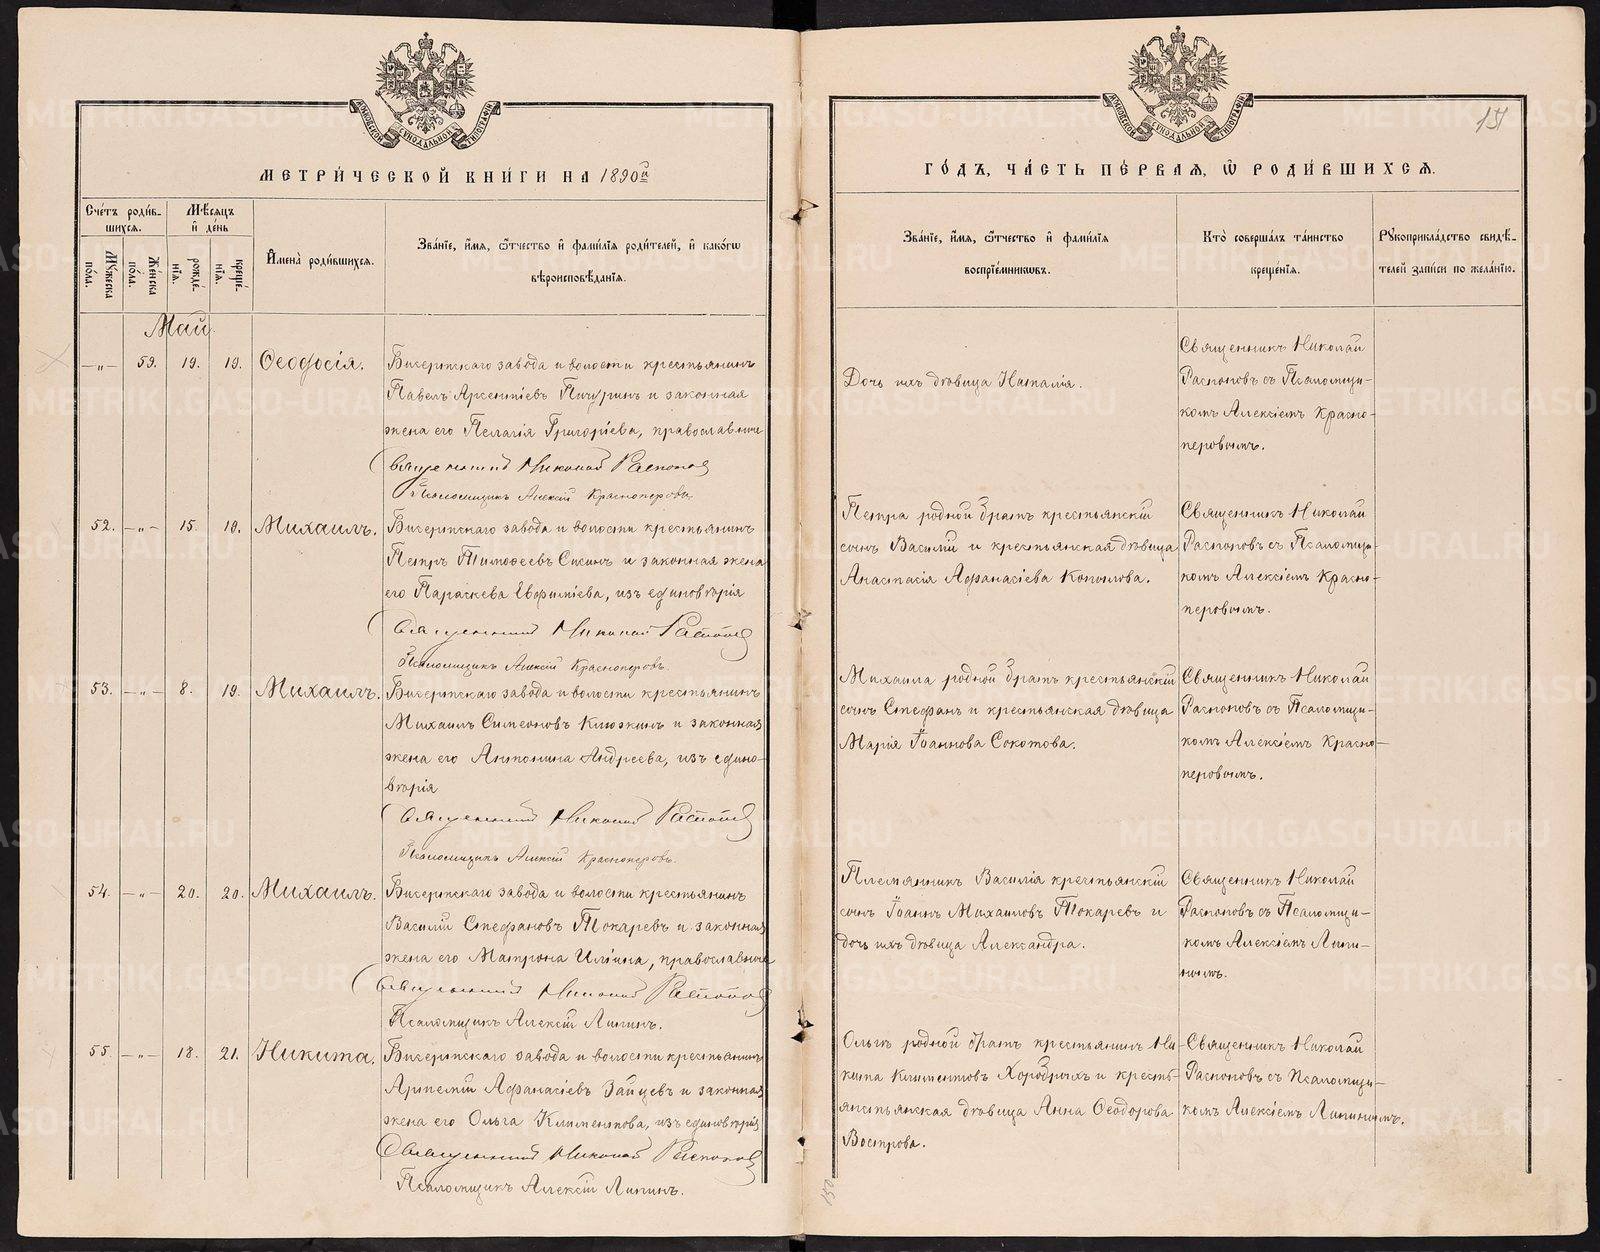 МОСКОВСКОЙ СѴНОДАЛЬНОЙ ТИПОГРАФІИ
МЕТРИ́ЧЕСКОЙ КНИ́ГИ НА 1890й
Сче́тъ роди́в-
шихсѧ.
Мѣ́сѧцъ
и҆ де́нь
Мꙋ́жеска
по́ла.
Же́нска
по́ла.
рожде́-
нїѧ.
креще́-
нїѧ.
И҆мена̀ роди́вшихсѧ.
Зва́нїе, и҆́мѧ, ѻ҆́тчество и҆ фами́лїѧ роди́телей, и҆ како́гѡ
вѣроисповѣ́данїѧ.
Май.
—„— 59. 19. 19. Ѳеодосія. Бисертскаго завода и волости крестьянинъ
Павелъ Арсентіевъ Пичуринъ и законная
жена его Пелагія Григоріева, православные
Священникъ Николай Распоповъ
Псаломщикъ Алексій Красноперовъ
52. —„— 15. 19. Михаилъ. Бисертскаго завода и волости крестьянинъ
Петръ Тимоѳеевъ Сысинъ и законная жена
его Параскева Евфиміева, изъ единовѣрія
Священникъ Николай Распоповъ
Псаломщикъ Алексій Красноперовъ.
53. —„— 8. 19. Михаилъ. Бисертскаго завода и волости крестьянинъ
Михаилъ Симеоновъ Клюкинъ и законная
жена его Антонина Андреева, изъ едино-
вѣрія
Священникъ Николай Распоповъ
Псаломщикъ Алексій Красноперовъ.
54. —„— 20. 20. Михаилъ. Бисертскаго завода и волости крестьянинъ
Василій Стефановъ Токаревъ и законная
жена его Матрона Иліина, православные
Священникъ Николай Распоповъ
Псаломщикъ Алексій Липинъ.
55. —„— 18. 21. Никита. Бисертскаго завода и волости крестьянинъ
Артемій Аѳанасіевъ Зайцевъ и законная
жена его Ольга Климентова, изъ единовѣрія
Священникъ Николай Распоповъ
Псаломщикъ Алексій Липинъ.
МОСКОВСКОЙ СѴНОДАЛЬНОЙ ТИПОГРАФІИ
151
ГО́ДЪ, ЧА́СТЬ ПЕ́РВАѦ, Ѡ҆ РОДИ́ВШИХСѦ.
Зва́нїе, и҆́мѧ, ѻ҆́тчество и҆ фами́лїѧ
воспрїе́мникѡвъ.
Кто̀ соверша́лъ та́инство
креще́нїѧ.
Рꙋкоприкла́дство свидѣ́-
телей за́писи по жела́нїю.
Дочь ихъ дѣвица Наталія.
Священникъ Николай
Распоповъ съ Псаломщи-
комъ Алексіемъ Красно-
перовымъ.
Петра родной братъ крестьянскій
сынъ Василій и крестьянская дѣвица
Анастасія Аѳанасіева Копылова.
Священникъ Николай
Распоповъ съ Псаломщи-
комъ Алексіемъ Красно-
перовымъ.
Михаила родной братъ крестьянскій
сынъ Стефанъ и крестьянская дѣвица
Марія Іоаннова Сокотова.
Священникъ Николай
Распоповъ съ Псаломщи-
комъ Алексіемъ Красно-
перовымъ.
Племянникъ Василія крестьянскій
сынъ Іоаннъ Михаиловъ Токаревъ и
дочь ихъ дѣвица Александра.
Священникъ Николай
Распоповъ съ Псаломщи-
комъ Алексіемъ Липи-
нымъ.
Ольги родной братъ крестьянинъ Ни-
кита Климентовъ Хоробрыхъ и кресть-
янстьянская дѣвица Анна Ѳеодорова
Вострова.
Священникъ Николай
Распоповъ съ Псаломщи-
комъ Алексіемъ Липинымъ.
150
METRIKI.GASO-URAL.RU